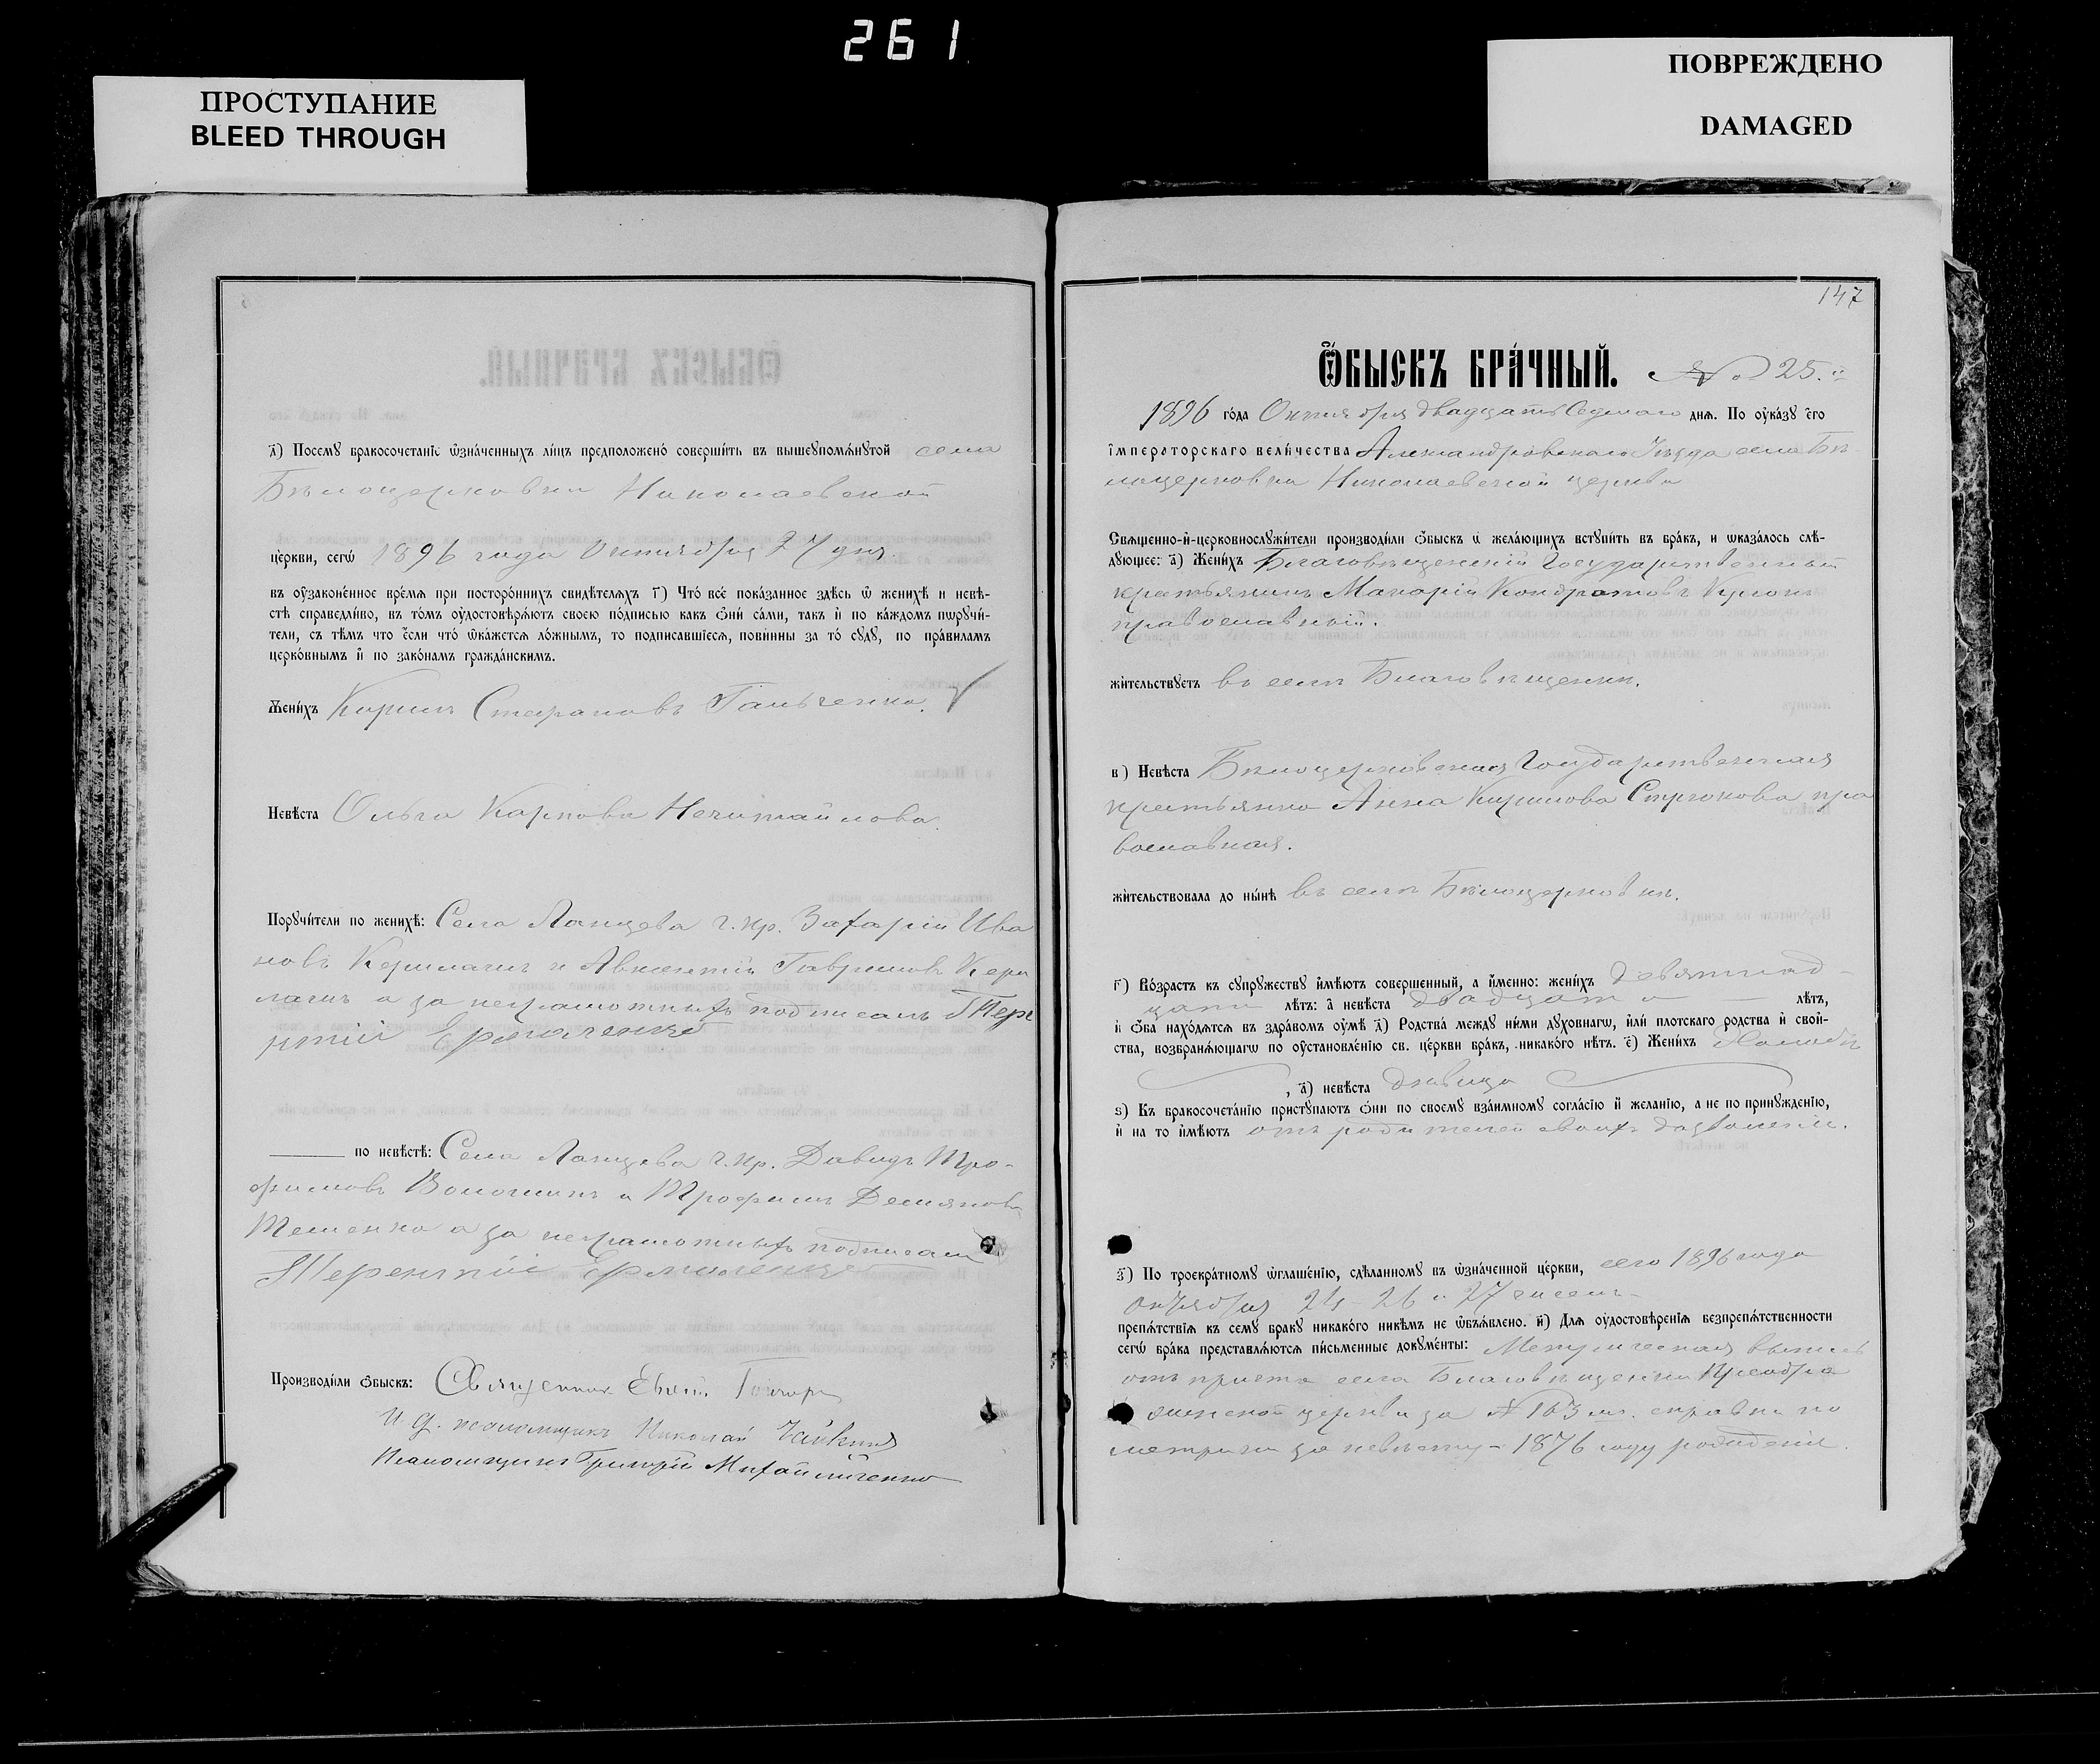 261
ПРОСТУПАНИЕ
BLEED THROUGH
ПОВРЕЖДЕНО
DAMAGED
д҃) Посемꙋ бракосочетанїе ѡ҆зна́ченныхъ ли́цъ предположено́ соверши́ть въ вышеꙋпомѧ́нꙋтой села
Бѣлоцерковки Николаевской
це́ркви, сегѡ̀ 1896 года Октября 27 дня.
въ ᲂу҆зако́ненное вре́мѧ при посторо́ннихъ свидѣ́телѧхъ г҃) Что́ всѐ пока́занное здѣ́сь ѡ҆ женихѣ̀ и невѣ́-
стѣ справедли́во, въ то́мъ ᲂу҆достовѣрѧ́ютъ своею по́дписью какъ ѻ҆нѝ са́ми, такъ и҆ по ка́ждомъ пѡрꙋчи́-
тели, съ тѣ́мъ что є҆́сли что́ ѡ҆ка́жетсѧ ло́жнымъ, то подписавшїесѧ, пови́нны за то́ сꙋдꙋ, по пра́виламъ
церко́внымъ и҆ по зако́намъ гражда́нскимъ.
Жени́хъ Кирилъ Стефановъ Гальченко.
Невѣ́ста Ольга Карпова Нечитайлова.
Порꙋчи́тели по женихѣ̀: Села Ланцева г. кр. Захарій Ива
новъ и Авксентій Гавриловъ
а за неграмотныхъ подписалъ Тере
нтій Ермоленко
по невѣ́стѣ: Села Ланцева г. кр. Давидъ Тро-
фимовъ Волошинъ и Трофимъ Демяновъ
а за неграмотныхъ подписалъ
Терентій Ермоленко
Производи́ли ѻ҆бы́скъ: Священник
И. д. псаломщика Николай
Псаломщикъ Григорій Михайличенко
147
Ѻ҆БЫСКЪ БРА́ЧНЫЙ. № 25.
1896 го́да Октября двадцать седмаго днѧ. По ᲂу҆ка́зꙋ є҆гѡ̀
і҆мпера́торскаго вели́чества Александровскаго Уѣзда села Бѣ
лоцерковки Николаевской церкви
Свѧще́нно-и҆-церковнослꙋжи́тели производи́ли ѻ҆бы́скъ ѡ҆ жела́ющихъ встꙋпи́ть въ бра́къ, и ѡ҆каза́лось слѣ́-
дꙋющее: а҃) Жени́хъ Благовѣщенскій Государственный
крестьянинъ Макарій Кондратовъ
православный.
жи́тельствꙋетъ въ селѣ Благовѣщенки.
в҃) Невѣ́ста Бѣлоцерковская Государственная
крестьянка Анна Кирилова Стрюкова пра
вославная.
жи́тельствовала до ны́нѣ въ селѣ Бѣлоцерковкѣ.
г҃) Во́зрастъ къ сꙋпрꙋ́жествꙋ и҆мѣ́ютъ соверше́нный, а и҆́менно: жени́хъ девятнад-
цати лѣ́тъ: а҆ невѣ́ста двадцати лѣ́тъ,
и҆ ѻ҆́ба нахо́дѧтсѧ въ здра́вомъ ᲂу҆мѣ̀ д҃) Родства́ междꙋ ни́ми дꙋхо́внагѡ, и҆лѝ пло́тскаго родства и҆ свои҆-
ства, возбранѧ́ющагѡ по ᲂу҆становле́нїю св. це́ркви бра́къ, никако́го нѣ́тъ. є҃) Жени́хъ Холостъ
, а҃) невѣ́ста дѣвица
ѕ҃) Къ бракосочета́нїю пристꙋпа́ютъ ѻ҆нѝ по своемꙋ̀ вза́имномꙋ согла́сїю и҆ жела́нїю, а не по принꙋжде́нїю,
и҆ на то и҆мѣ́ютъ отъ родителей своихъ дозволеніе.
з҃) По троекра́тномꙋ ѡ҆глаше́нїю, сдѣ́ланномꙋ въ ѡ҆зна́ченной це́ркви, сего 1896 года
октября 24 - 26 и 27 чиселъ
препѧ́тствїѧ къ семꙋ̀ браку никако́го никѣ́мъ не ѡ҆б̾ѧ́влено. и҃) Длѧ ᲂу҆достовѣре́нїѧ безпрепѧ́тственности
сегѡ̀ бра́ка представлѧ́ютсѧ пи́сьменные докꙋме́нты: Метрическая выпись
отъ причта села Благовѣщенки Преобра
женской церкви за № 163 м. справка по
метрики за невѣсту - 1876 году рожденія.